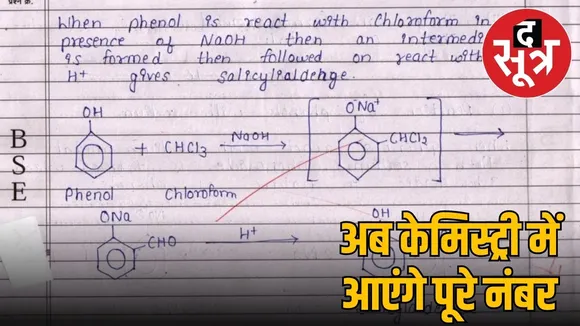 प्रश्न क्र.
When phenol is react with Chloroform in
presence of NaOH then an intermedi
is formed then followed on react with
H+ gives salicylaldehyde.
द
सूत्र
OH
+ CHCl3
NaOH
ONa+
CHCl2
Phenol Chloroform
ONa
CHO
H+
OH
B
S
E
अब केमिस्ट्री में
आएंगे पूरे नंबर